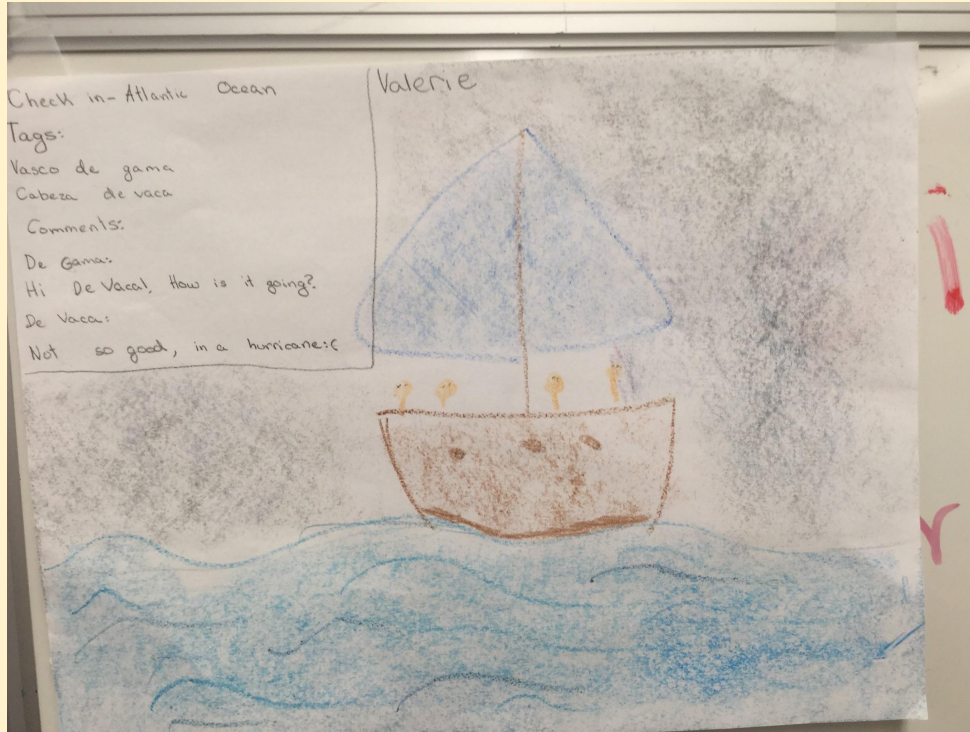 Check in- Atlantic Ocean
Tags:
Vasco de gama
Cabeza de vaca
Comments:
De Gama:
Hi De Vaca!, How is it going?
De Vaca:
Not so good, in a hurricane:(
Valerie